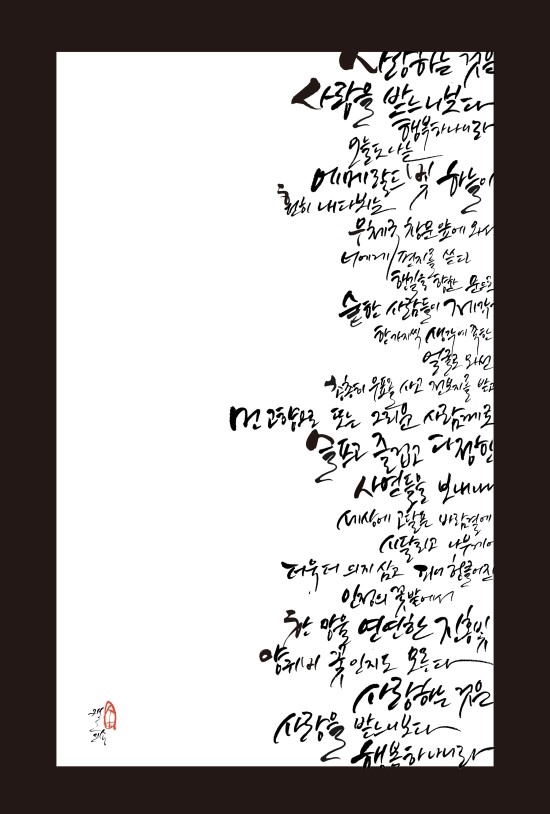 사랑하는 것은
사랑을 받느니보다
행복하나니라
오늘도 나는
에메랄드 빛 하늘이
훤히 내다뵈는
우체국 창문 앞에 와서
너에게 편지를 쓴다
행길을 향한 문으로
숱한 사람들이 제각기
한 가지씩 생각에 족한
얼굴로 와선
총총히 우표를 사고 전보지를 받고
먼 고향으로 또는 그리운 사람께로
슬프고 즐겁고 다정한
사연들을 보내나니
세상에 고달픈 바람결에
시달리고 나부끼어
더욱더 의지 삼고 피어 헝클어진
인정의 꽃밭에서
한 망울 연연한 진홍빛
양귀비 꽃인지도 모른다
사랑하는 것은
사랑을 받느니보다
행복하나니라